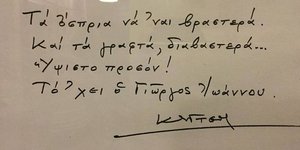 Τά ὄσπρια νά 'ναι βραστερά.
Καί τά γραφτά, διαβαστερά...
Ὕψιστο προσόν!
Τό 'χει ὁ Γιῶργος Ἰωάννου.